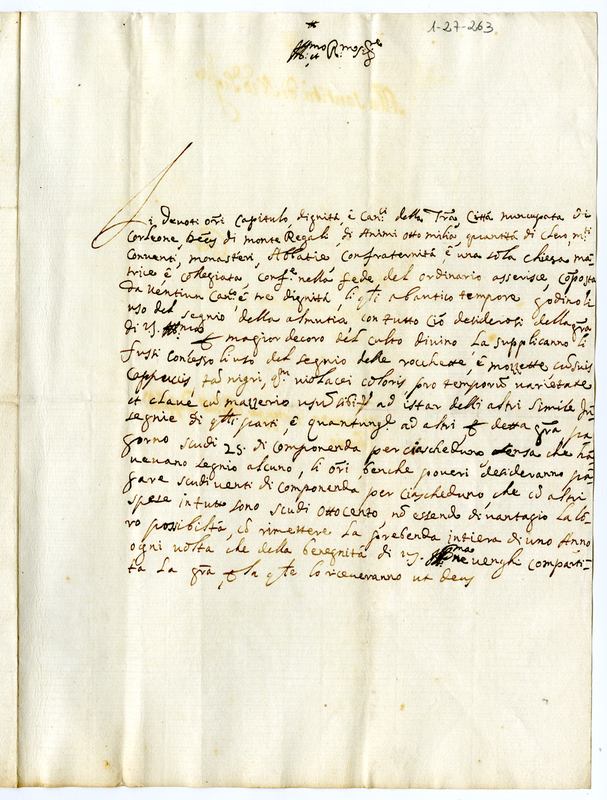 1-27-263
Ill.mo et R.mo Sig.re
Li devoti ori Capitulo, dignità è Can.ci della Trã Città nuncupata di
Corleone, Diec.s di monte Regale, di Animi otto milia, quantità di clero, m.ti
Conventi, monasteri, Abbatie Confraternità è una sola chiesa ma-
trice è Collegiata Conf.e nella fede del ordinario asserisce, Composta
da ventiun Can.ci è tre dignità, li q.li ab antico tempore godino l'
uso del segnio della almutia, con tutto ciò desiderosi della grã
di V.S. Ill.ma p maggior decoro del culto divino La supplicanno li
fussi concesso l'uso del segnio delle rocchette, è mozzette cũ suis
Cappucciis tã nigri, q.m violacei coloris, pro temporũ varietate
et clava cũ mazzerio ad istar delli altri simile In-
segnie di q.lli parti, è quantunq.e ad altri p detta grã pa-
gorno scudi 25. di componenda per ciascheduno senza che ha-
vevano segnio alcuno, li ori, benche poveri desideranno pa-
gare scudi venti di componenda per ciascheduno, che cũ altri
spese in tutto sono scudi ottocento, nõ essendo di vantagio la lo-
ro possibiltà, cõ rimettere la prebenda intiera di uno Anno
ogni volta che della benegnità di V.S. Ill.ma ne venghi comparti-
ta la grã p la q.le lo riceveranno ut Deus